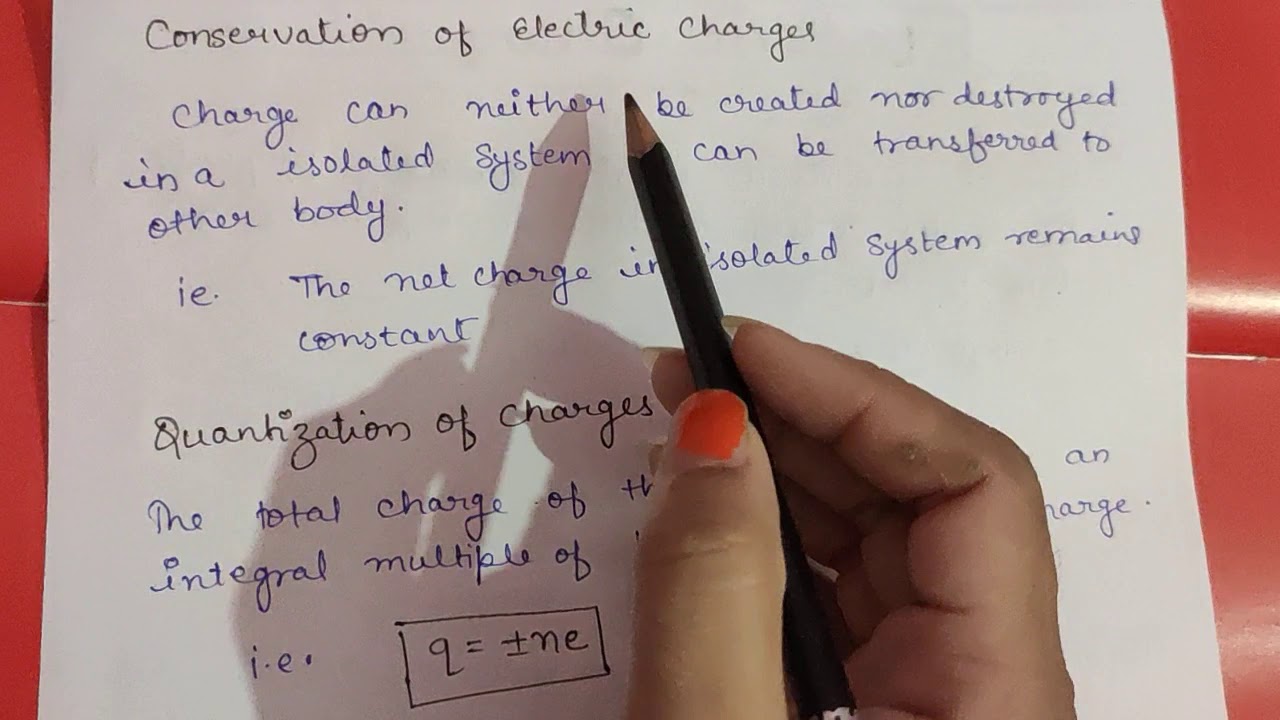 Conservation of Electric Charges
Charge can neither be created nor destroyed
in a isolated system can be transferred to
other body.
ie. The net charge in isolated system remains
constant
Quantization of charges
The total charge of an
integral multiple of
i.e. q = ±ne